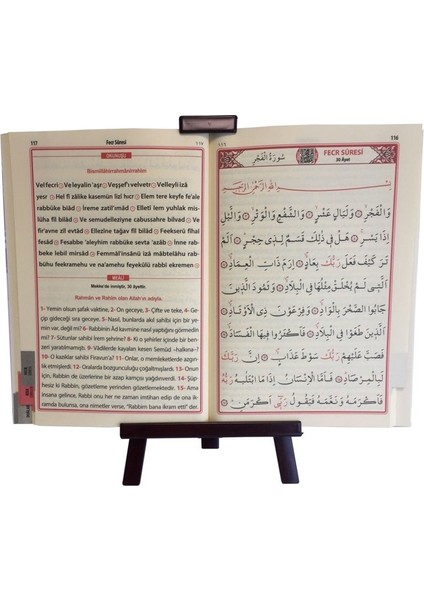 116
١١٥
FECR SÛRESİ
30 Âyet
سُورَةُ الْفَجْرِ
بِسْمِ اللّٰهِ الرَّحْمٰنِ الرَّحِيمِ
وَالْفَجْرِ وَلَيَالٍ عَشْرٍ وَالشَّفْعِ وَالْوَتْرِ وَالَّيْلِ
اِذَا يَسْرِ هَلْ فِى ذٰلِكَ قَسَمٌ لِذِى حِجْرٍ اَلَمْ
تَرَ كَيْفَ فَعَلَ رَبُّكَ بِعَادٍ اِرَمَ ذَاتِ الْعِمَادِ
اَلَّتِى لَمْ يُخْلَقْ مِثْلُهَا فِى الْبِلَادِ وَثَمُودَ الَّذِينَ
جَابُوا الصَّخْرَ بِالْوَادِ وَفِرْعَوْنَ ذِى الْاَوْتَادِ
اَلَّذِينَ طَغَوْا فِى الْبِلَادِ فَاَكْثَرُوا فِيهَا الْفَسَادَ
فَصَبَّ عَلَيْهِمْ رَبُّكَ سَوْطَ عَذَابٍ اِنَّ رَبَّكَ
لَبِالْمِرْصَادِ فَاَمَّا الْاِنْسَانُ اِذَا مَا ابْتَلٰيهُ رَبُّهُ
فَاَكْرَمَهُ وَنَعَّمَهُ فَيَقُولُ رَبِّى اَكْرَمَنِ
117
Fecr Sûresi
OKUNUŞU
Bismillâhirrahmânirrahîm
Vel fecri Ve leyalin 'aşr Veşşef'ı velvetr Velleyli izâ
yesr Hel fî zâlike kasemün lizî hıcr Elem tere keyfe fe'ale
rabbüke biâd İreme zatil'ımâd Elletî lem yuhlak mis-
lüha fil bilâd Ve semudelleziyne cabussahre bilvad Ve
fir'avne zil evtâd Ellezine tağav fil bilâd Feekserû fihal
fesad Fesabbe 'aleyhim rabbüke sevta 'azâb İnne rab-
beke lebil mirsâd Femmâl'insânü izâ mâbtelâhu rab-
bühu feekramehu ve na'amehu feyekûlü rabbî ekremen
MEALİ
Mekke'de inmiştir, 30 Âyettir.
Rahmân ve Rahîm olan Allah'ın adıyla.
1- Yemin olsun şafak vaktine, 2- On geceye, 3- Çifte ve teke, 4- Ge-
çip gideceği sıra geceye. 5- Nasıl, bunlarda akıl sahibi için bir ye-
min var, değil mi? 6- Rabbinin Âd kavmine nasıl yaptığını görmedin
mi? 7- Sütunlar sahibi İrem şehrine? 8- Ki o şehirler içinde bir ben-
zeri yaratılmamıştı. 9- Vâdilerde kayaları kesen Semûd –halkına–?
10- O kazıklar sahibi Firavun'a? 11- Onlar, o memleketlerde azgın-
lık etmişlerdi. 12- Oralarda bozgunculuğu çoğaltmışlardı. 13- Onun
için, Rabbin de üzerlerine bir azap kamçısı yağdıverdi. 14- Şüp-
hesiz ki Rabbin, gözetleme yerindedir/gözetlemektedir. 15- Ama
insana gelince, Rabbi onu her ne zaman imtihan edip de ona ik-
ramda bulunsa, ona nimetler verse, "Rabbim bana ikram etti" der.